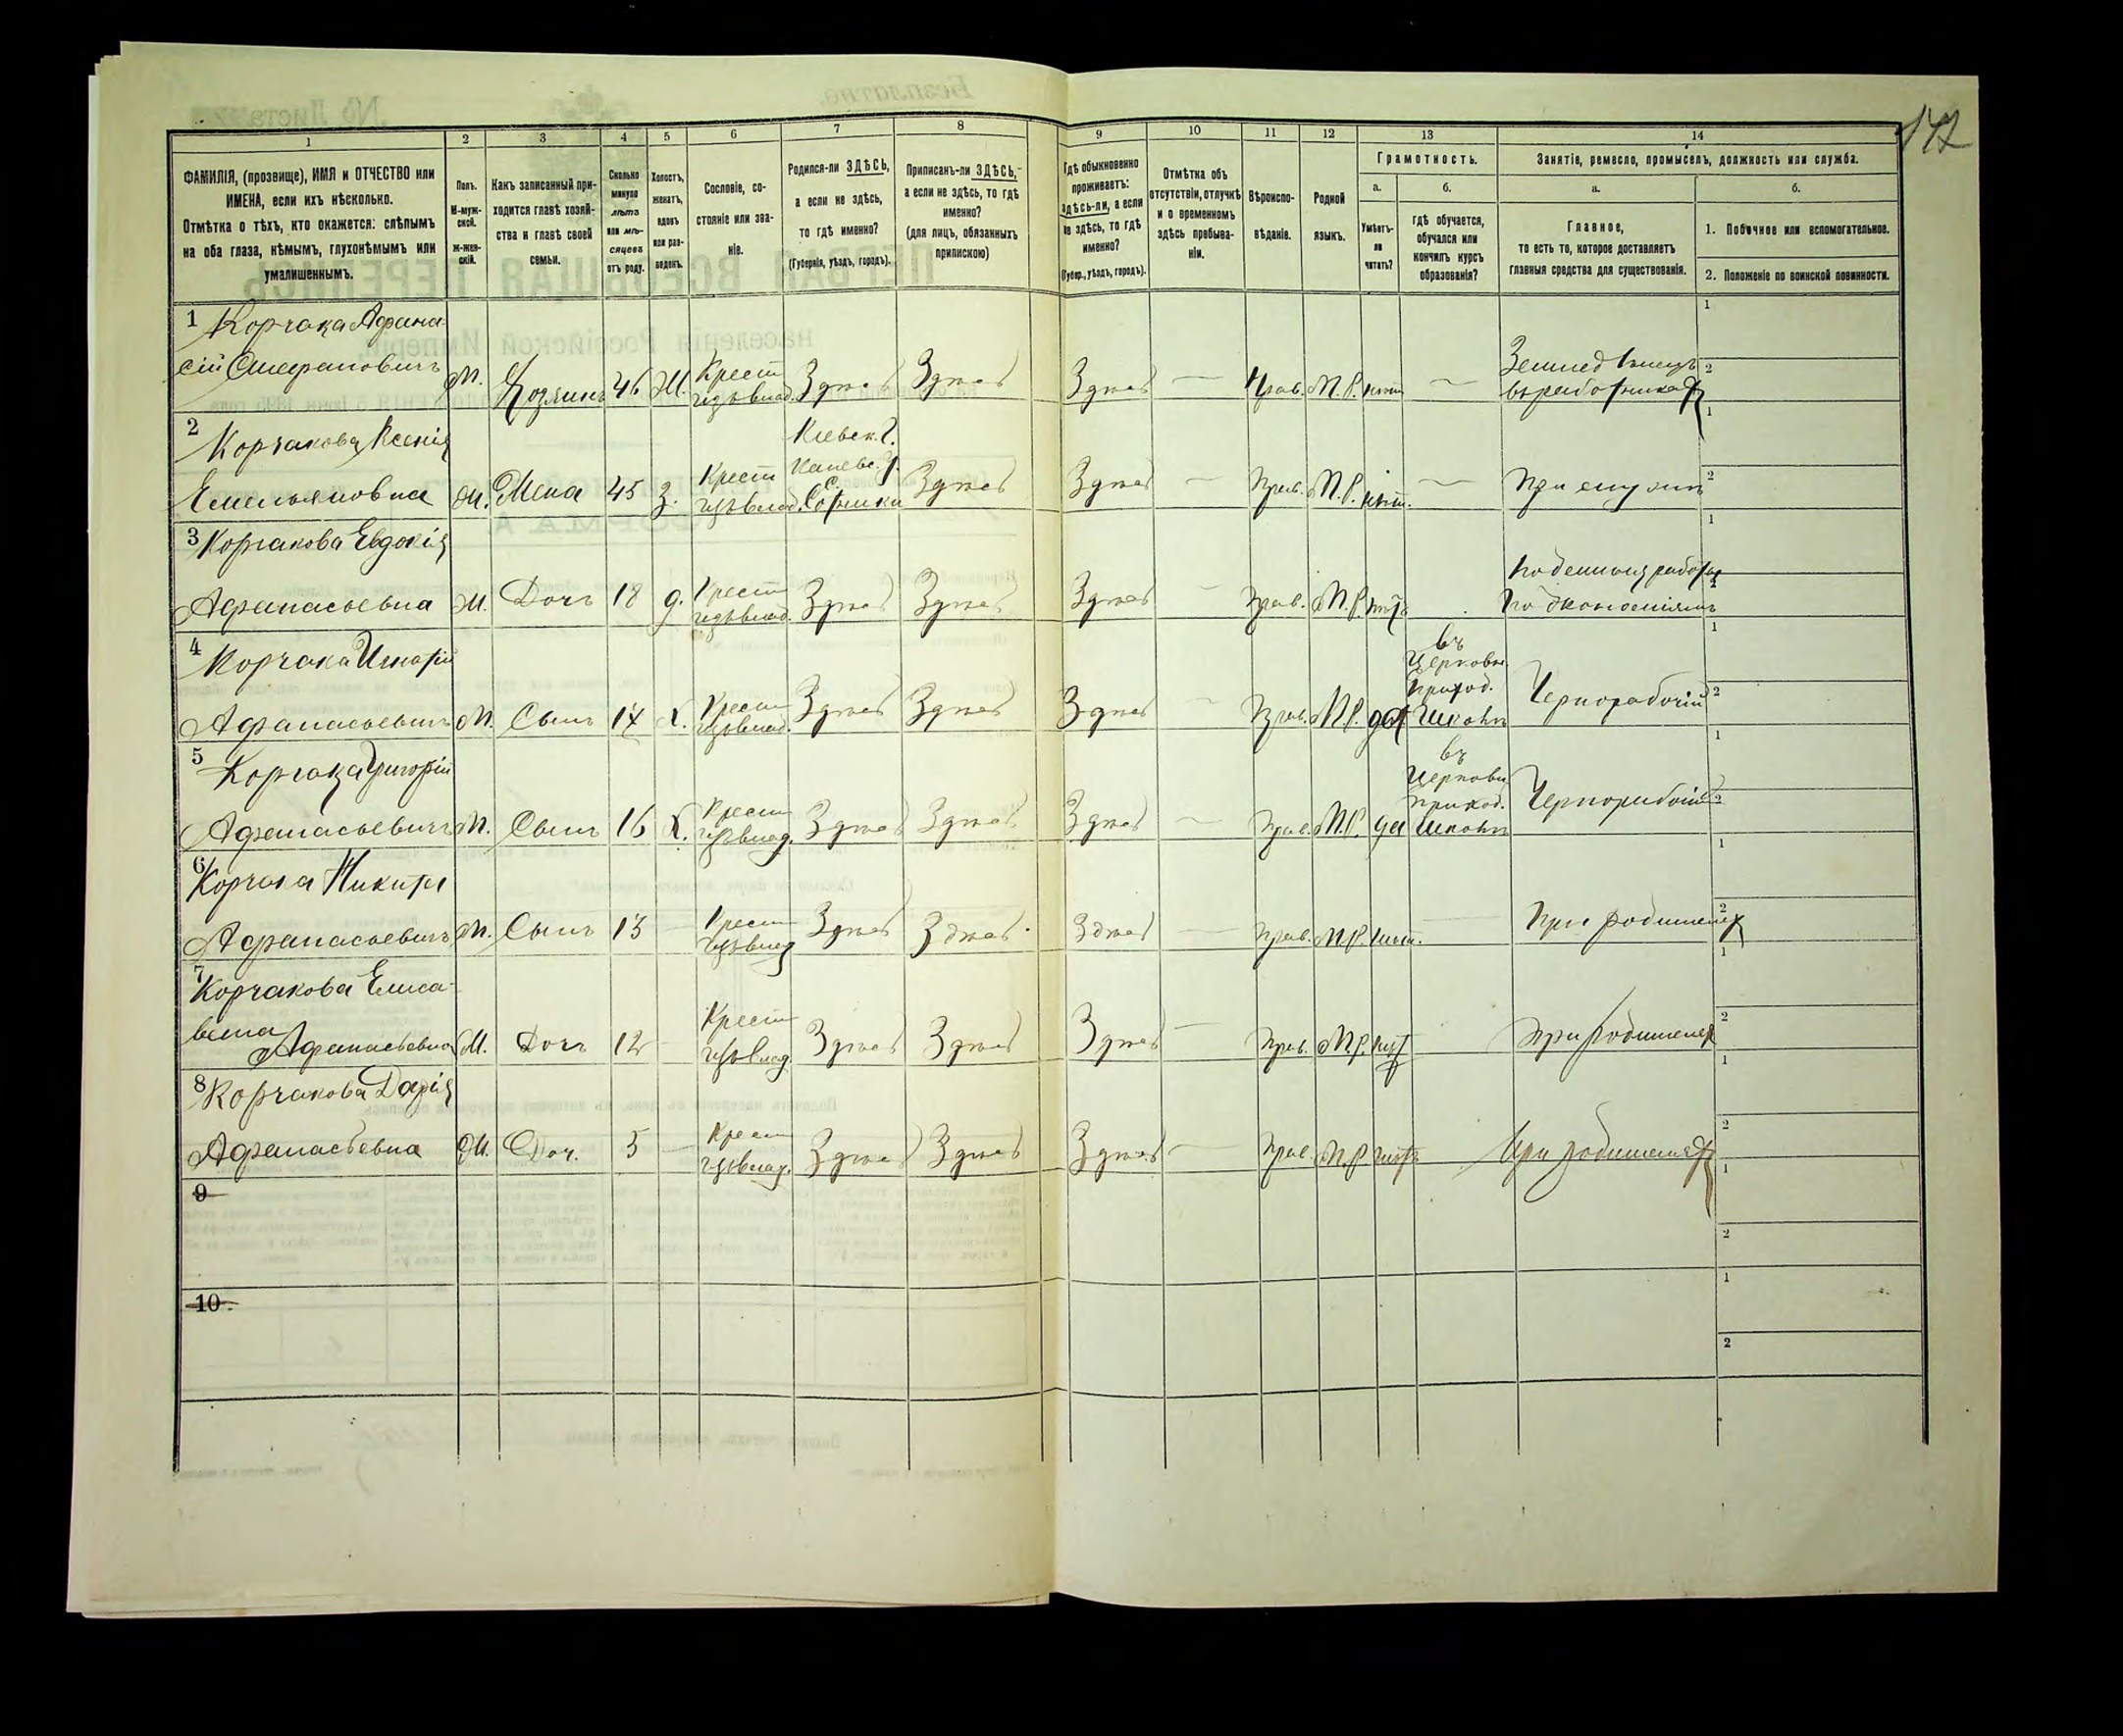 142
1
2
3
4
5
6
7
8
9
10
11
12
13
14
ФАМИЛІЯ, (прозвище), ИМЯ и ОТЧЕСТВО или
ИМЕНА, если ихъ нѣсколько.
Отмѣтка о тѣхъ, кто окажется: слѣпымъ
на оба глаза, нѣмымъ, глухонѣмымъ или
умалишеннымъ.
Полъ.
М-муж-
ской.
Ж-жен-
скій.
Какъ записанный при-
ходится главѣ хозяй-
ства и главѣ своей
семьи.
Сколько
минуло
лѣтъ
или мѣ-
сяцевъ
отъ роду.
Холостъ,
женатъ,
вдовъ
или раз-
веденъ.
Сословіе, со-
стояніе или зва-
ніе.
Родился-ли ЗДѢСЬ,
а если не здѣсь,
то гдѣ именно?
(Губернія, уѣздъ, городъ).
Приписанъ-ли ЗДѢСЬ,
а если не здѣсь, то гдѣ
именно?
(для лицъ, обязанныхъ
припискою)
Гдѣ обыкновенно
проживаетъ:
здѣсь-ли, а если
не здѣсь, то гдѣ
именно?
(Губер., уѣздъ, городъ).
Отмѣтка объ
отсутствіи, отлучкѣ
и о временномъ
здѣсь пребыва-
ніи.
Вѣроиспо-
вѣданіе.
Родной
языкъ.
Грамотность.
а.
б.
Умѣетъ-
ли
читать?
гдѣ обучается,
обучался или
кончилъ курсъ
образованія?
Занятіе, ремесло, промыселъ, должность или служба.
а.
б.
Главное,
то есть то, которое доставляетъ
главныя средства для существованія.
1. Побочное или вспомогательное.
2. Положеніе по воинской повинности.
1 Корчака Афана-
сій Стефановичъ М. Хозяинъ 46 Ж. Крест. Здѣсь Здѣсь Здѣсь — Прав. М.Р. нѣтъ — Земледѣлецъ
2 Корчакова Ксенія Кіевск. г.
Каневс. у.
Емельяновна Ж. Жена 45 З. Крест. с. Сотники Здѣсь Здѣсь — Прав. М.Р. нѣт. — При мужѣ
3 Корчакова Евдокія
Афанасьевна Ж. Дочь 18 д. Крест. Здѣсь Здѣсь Здѣсь — Прав. М.Р. нѣтъ Поденныя работы
по экономіямъ
4 Корчака Игнатій въ
Церковн.
Приход.
Афанасьевичъ М. Сынъ 17 Х. Крест. Здѣсь Здѣсь Здѣсь — Прав. М.Р. да школѣ Чернорабочій
5 Корчака Григорій въ
Церковн.
Приход.
Афанасьевичъ М. Сынъ 16 Х. Крест. Здѣсь Здѣсь Здѣсь — Прав. М.Р. да школѣ Чернорабочій
6 Корчака Никита
Афанасьевичъ М. Сынъ 13 — Крест. Здѣсь Здѣсь Здѣсь — Прав. М.Р. нѣт. — При родителяхъ
7 Корчакова Елиса-
вета Афанасьевна Ж. Дочь 12 Крест. Здѣсь Здѣсь Здѣсь — Прав. М.Р. нѣт При родителях
8 Корчакова Дарія
Афанасьевна Ж. Доч. 5 — Крест. Здѣсь Здѣсь Здѣсь — Прав. М.Р. нѣтъ При родителях
9
10